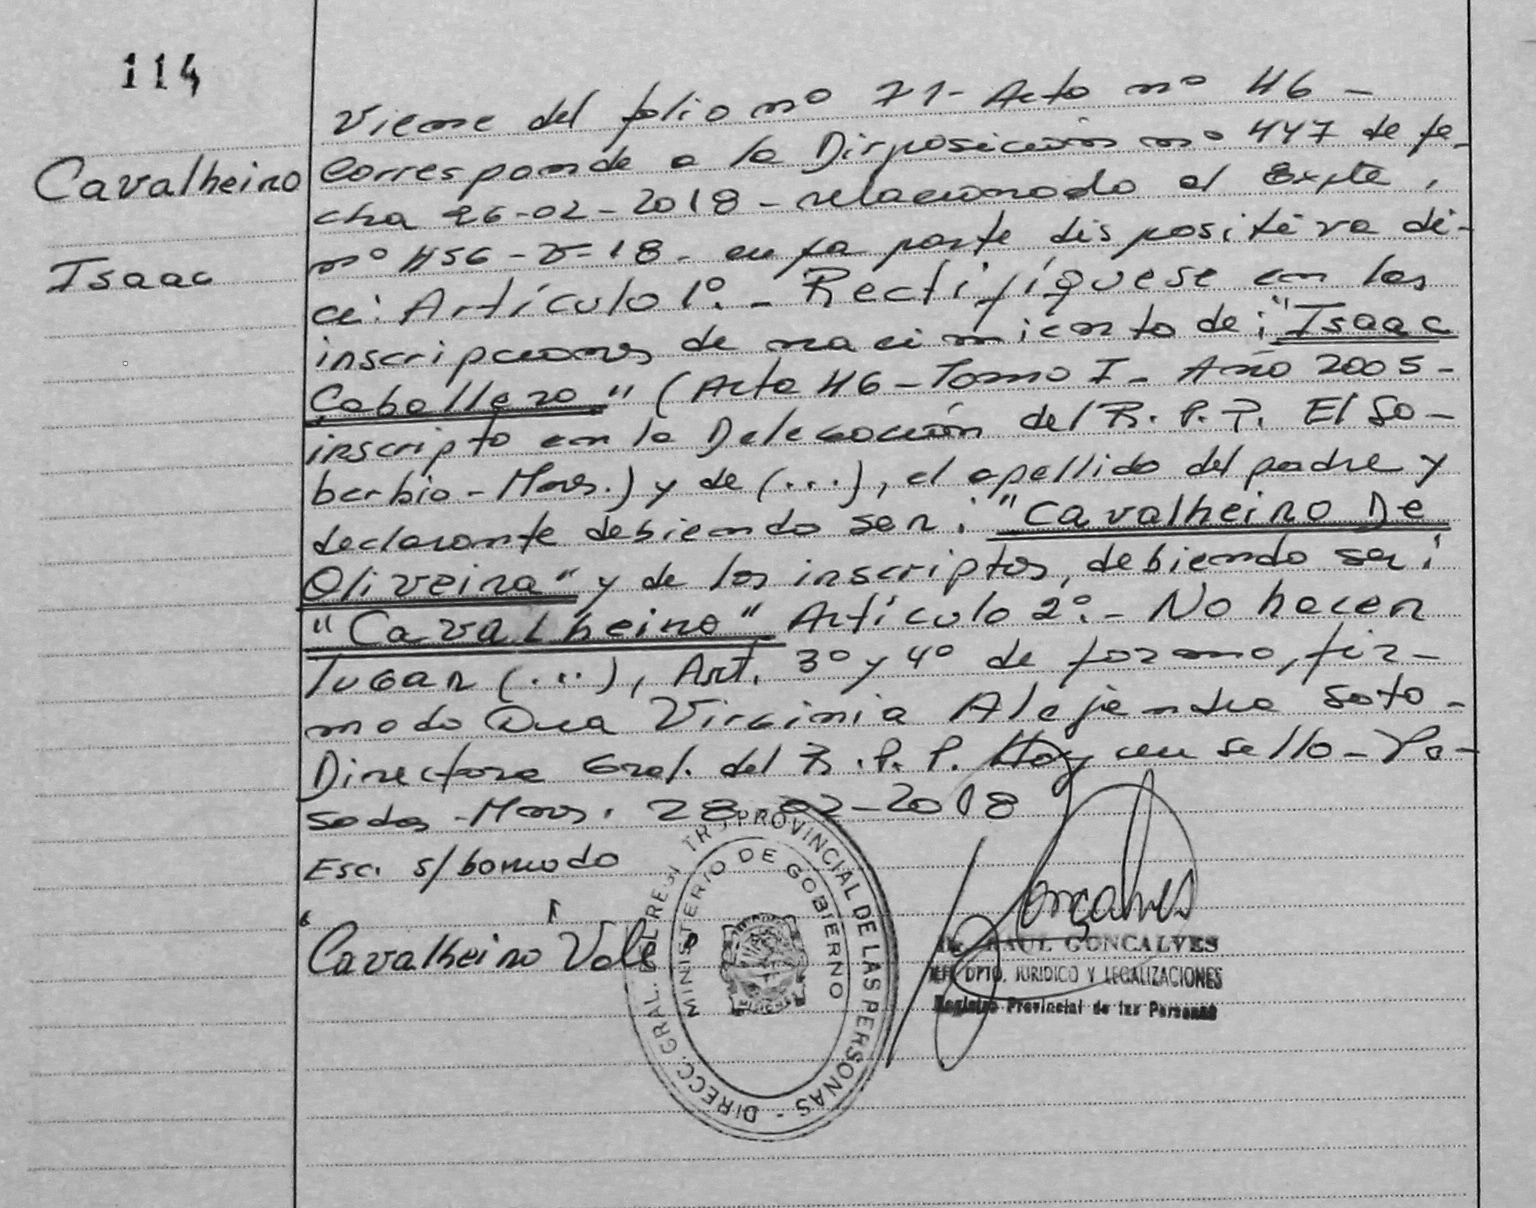 114
Cavalheiro
Isaac
Viene del folio nº 71- Acta nº 46 -
Corresponde a la Disposición nº 447 de fe-
cha 26-02-2018 - relacionado al Expte,
nº 456 - 18 - en la parte dispositiva di-
ce: Artículo 1º. - Rectifíquese en las
inscripciones de nacimiento de: "Isaac
Caballero" (Acta 46 - Tomo I - Año 2005 -
inscripto en la Delegación del R. P. P. El So-
berbio - Mnes.) y de (...), el apellido del padre y
declarante debiendo ser: "Cavalheiro De
Oliveira" y de los inscriptos, debiendo ser:
"Cavalheiro" Artículo 2º. - No hacer
lugar (...), Art. 3º y 4º de forma, fir-
mado Dra Virginia Alejandra Soto -
Directora Gral. del R. P. P. Hay un sello - Po-
sadas - Mnes. 28-02-2018
Esc. s/borrado
"Cavalheiro" Vale
DIRECC. GRAL. DEL REGISTRO PROVINCIAL DE LAS PERSONAS -
MINISTERIO DE GOBIERNO
Gonçalves
Dr. RAUL GONCALVES
JEFE DPTO. JURIDICO Y LEGALIZACIONES
Registro Provincial de las Personas